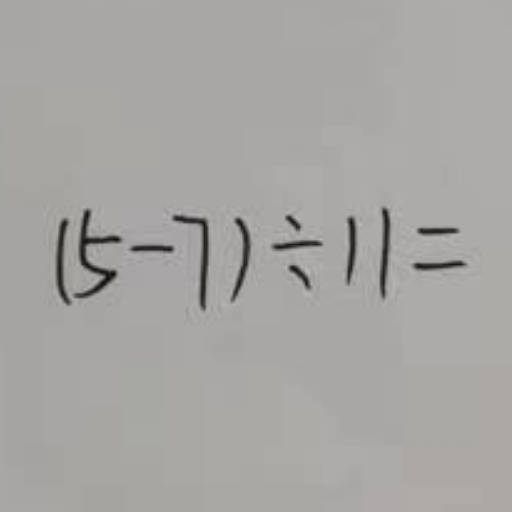 (5-7)÷11=